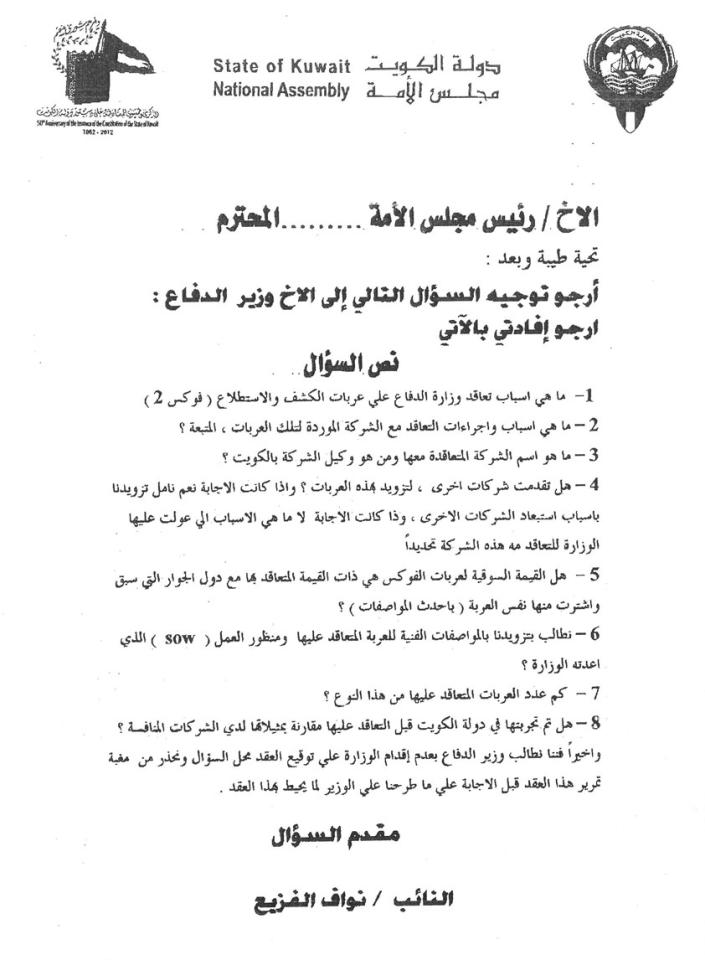 State of Kuwait دولة الكويت
National Assembly مجلس الأمة
دولة الكويت
50th Anniversary of the Issuance of the Constitution of the State of Kuwait
1962 - 2012
الاخ / رئيس مجلس الأمة ......... المحترم
تحية طيبة وبعد :
أرجو توجيه السؤال التالي إلى الاخ وزير الدفاع :
ارجو إفادتي بالآتي
نص السؤال
1- ما هي اسباب تعاقد وزارة الدفاع علي عربات الكشف والاستطلاع ( فوكس 2 )
2 – ما هي اسباب واجراءات التعاقد مع الشركة الموردة لتلك العربات ، المتبعة ؟
3 – ما هو اسم الشركة المتعاقدة معها ومن هو وكيل الشركة بالكويت ؟
4 – هل تقدمت شركات اخرى ، لتزويد بهذه العربات ؟ واذا كانت الاجابة نعم نامل تزويدنا
باسباب استبعاد الشركات الاخرى ، وذا كانت الاجابة لا ما هي الاسباب الي عولت عليها
الوزارة للتعاقد مه هذه الشركة تحديداً
5 – هل القيمة السوقية لعربات الفوكس هي ذات القيمة المتعاقد بها مع دول الجوار التي سبق
واشترت منها نفس العربة ( باحدث المواصفات ) ؟
6 – نطالب بتزويدنا بالمواصفات الفنية للعربة المتعاقد عليها ومنظور العمل ( sow ) الذي
اعدته الوزارة ؟
7 – كم عدد العربات المتعاقد عليها من هذا النوع ؟
8 – هل تم تجربتها في دولة الكويت قبل التعاقد عليها مقارنة بمثيلاتها لدي الشركات المنافسة ؟
واخيراً فننا نطالب وزير الدفاع بعدم إقدام الوزارة علي توقيع العقد محل السؤال ونحذر من مغبة
تمرير هذا العقد قبل الاجابة علي ما طرحنا علي الوزير لما يحيط بهذا العقد .
مقدم السؤال
النائب / نواف الفزيع